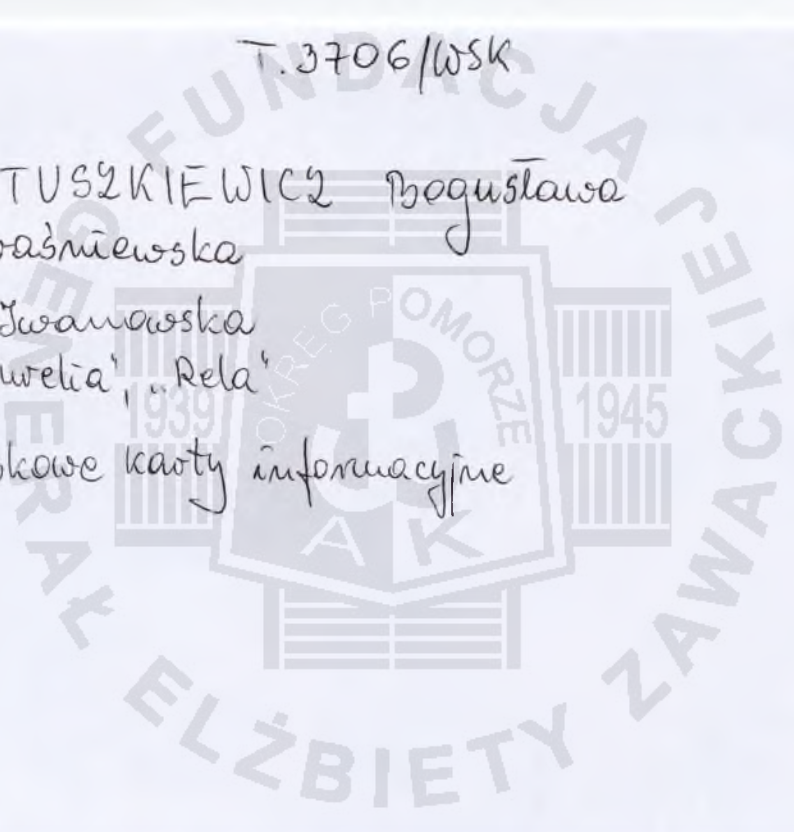 T.3706/WSK
TUSZKIEWICZ Bogusława
raśniewska
Iwanowska
urelia", "Rela"
kowe karty informacyjne
FUNDACJA GENERAŁ ELŻBIETY ZAWACKIEJ
OKRĘG POMORZE
1939 1945
AK